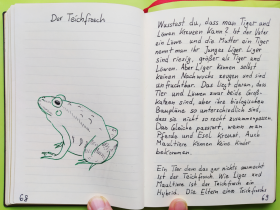 Der Teichfrosch
68
Wusstest du, dass man Tiger und
Löwen kreuzen kann? Ist der Vater
ein Löwe und die Mutter ein Tiger
nennt man ihr Junges Liger. Liger
sind riesig, größer als Tiger und
Löwen. Aber Liger können selbst
keinen Nachwuchs zeugen und sind
unfruchtbar. Das liegt daran, dass
Tier und Löwen zwar beide Groß-
katzen sind, aber ihre biologischen
Baupläne so unterschiedlich sind,
dass sie nicht so recht zusammenpassen.
Das Gleiche passiert, wenn man
Pferde und Esel kreuzt. Auch
Maultiere können keine Kinder
bekommen.
Ein Tier dem das gar nichts ausmacht
ist der Teichfrosch. Wie Liger und
Maultiere ist der Teichfrosch ein
Hybrid. Die Eltern eine Teichfroschs